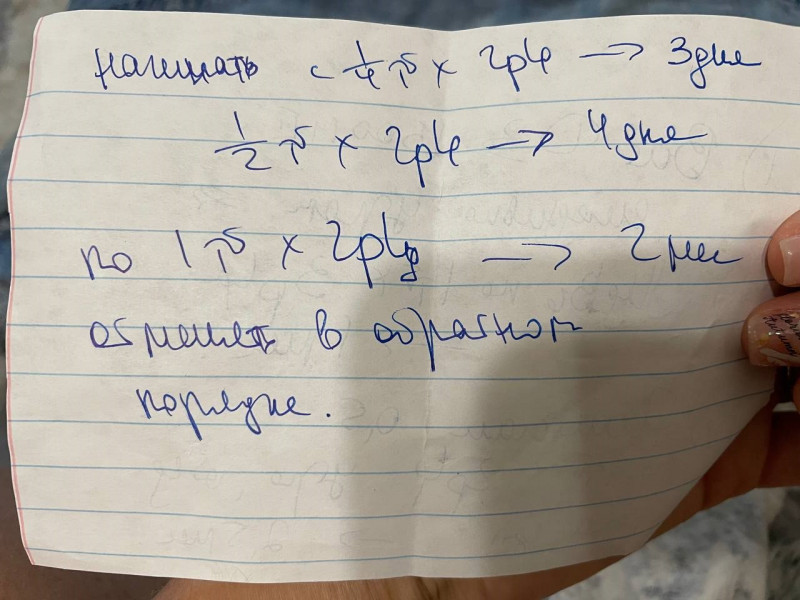 начинать с 1/4 т x 2р/д → 3 дня
1/2 т x 2р/д → 4 дня
по 1 т x 2р/д → 2 мес
отменять в обратном
порядке.